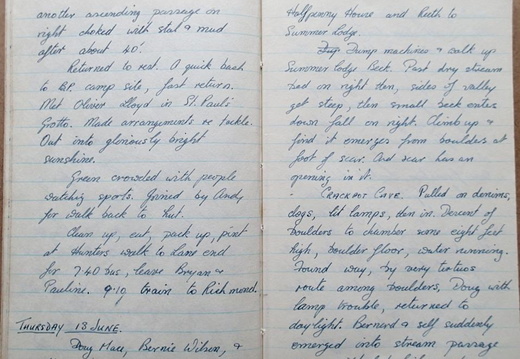 another ascending passage on
right choked with stal & mud
after about 40'.
Returned to rest. A quick bash
to B.P. camp site, fast return.
Met Oliver Lloyd in St. Pauls
Grotto. Made arrangements re tackle.
Out into gloriously bright
sunshine.
Green crowded with people
watching sports. Joined by Andy
for walk back to hut.
Clean up, eat, pack up, pint
at Hunters walk to Lane end
for 7.40 bus, leave Bryan &
Pauline. 9.10 train to Richmond.
THURSDAY 13 JUNE.
Doug Mace, Bernie Wilson, &
Halfpenny House and Reeth to
Summer Lodge.
Dump machines & walk up
Summer Lodge Beck. Past dry stream
bed on right then, sides of valley
get steep, then small beck enters
down fall on right. Climb up &
find it emerges from boulders at
foot of scar. And scar has an
opening in it.
- CRACKPOT CAVE. Pulled on denims,
clogs, lit lamps, then in. Descent of
boulders to chamber some eight feet
high, boulder floor, water running.
Found way, by very tortuous
route among boulders. Doug with
lamp trouble, returned to
daylight. Bernard & self suddenly
emerged into stream passage